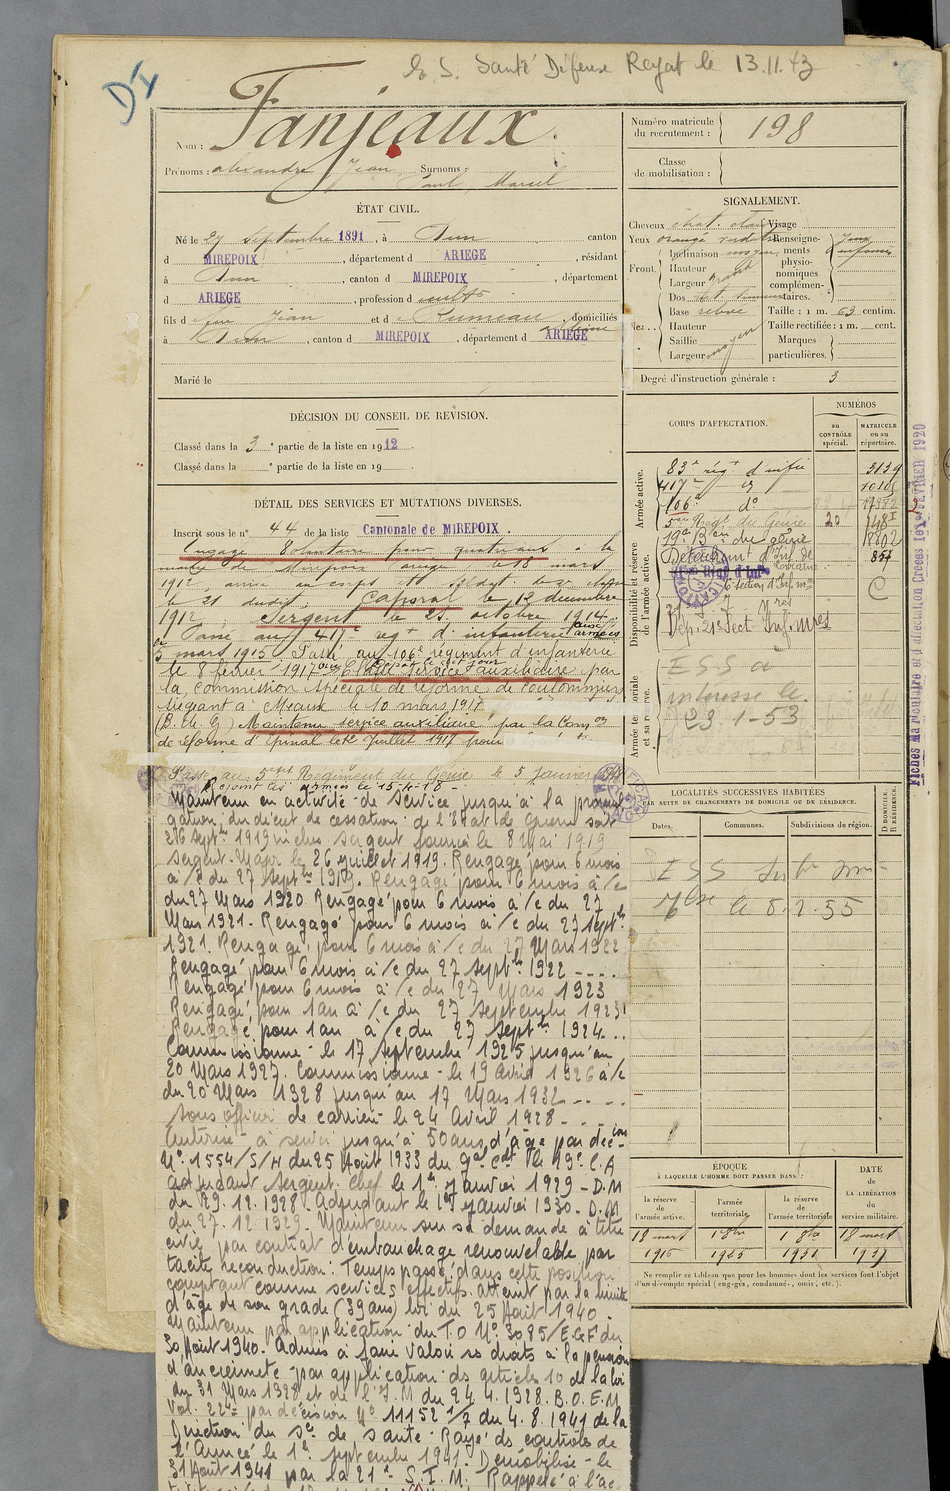 E. S. Santé Défense Royat le 13.11.43
Nom : Fanjeaux
Prénoms : alexandre Jean Surnoms :
Paul, Marcel
ÉTAT CIVIL.
Né le 27 septembre 1891, à Dun canton
d MIREPOIX, département d ARIEGE, résidant
à Dun, canton d MIREPOIX, département
d ARIEGE, profession de cult
fils d feu Jean et d Rumeau, domiciliés
à Dun, canton d MIREPOIX, département d ARIEGE
Marié le
DÉCISION DU CONSEIL DE REVISION.
Classé dans la 3e partie de la liste en 1912.
Classé dans la e partie de la liste en 19
DÉTAIL DES SERVICES ET MUTATIONS DIVERSES.
Inscrit sous le no 44 de la liste Cantonale de MIREPOIX.
Engagé Volontaire pour quatre ans à la
mairie de Mirepoix Ariège le 18 mars
1912, arrivé au corps et soldat de 2e classe
le 21 dudit. Caporal le 12 décembre
1912. Sergent le 25 octobre 1914.
Passé au 417e régt d'infanterie
5 mars 1915. Passé au 106e régiment d'infanterie
le 8 février 1917. Classé service auxiliaire par
la Commission spéciale de réforme de Coulommiers
siégeant à Meaux le 10 mars 1917
(B. de G.) Maintenu service auxiliaire par la Comon
de réforme d'Epinal le Juillet 1917 pour
Passé au 5e Régiment du Génie le 5 janvier
Maintenu en activité de service jusqu'à la promul
gation du décret de cessation de l'état de guerre soit
sergent fourrier le 8 Mai 1919
Sergent-Major le 26 juillet 1919. Rengagé pour 6 mois
à /c du 27 Septbre 1919. Rengagé pour 6 mois à /c
du 27 Mars 1920. Rengagé pour 6 mois à /c du 27
Mars 1921. Rengagé pour 6 mois à /c du 27 Septbre
1921. Rengagé pour 6 mois à /c du 27 Mars 1922
Rengagé pour 6 mois à /c du 27 Septbre 1922 - - - -
Rengagé pour 6 mois à /c du 27 Mars 1923
Rengagé pour 1 an à /c du 27 Septembre 1923
Rengagé pour 1 an à /c du 27 Septbre 1924 . .
Commissionné le 17 Septembre 1925 jusqu'au
20 Mars 1927. Commissionné le 19 Avril 1926 à /c
du 20 Mars 1928 jusqu'au 17 Mars 1932 - - - -
Sous officier de carrière le 24 Avril 1928 - - -
Autorisé à servir jusqu'à 50 ans d'âge par décon
No 1554/S/H du 25 Août 1933 du Gal Cdt le 19e C.A
adjudant Sergent chef le 1er Janvier 1929 - D.M
du 29.12.1928. Adjudant le 1er Janvier 1930. D.M
du 27.12.1929. Maintenu sur sa demande à titre
civil par contrat d'embauchage renouvelable par
tacite reconduction : Temps passé dans cette position
comptant comme services effectifs. atteint par la limite
d'âge de son grade (39 ans) loi du 25 Août 1940 -
Maintenu par application du T.O No 3085/E.G.F du
30 Août 1940. Admis à faire valoir ses droits à la pension
d'ancienneté par application des articles 10 de la loi
du 31 Mars 1928 et de l'I.M du 24.4.1928. B.O.E.M
Vol. 22 par décision No 11152 1/7 du 4.8.1941 de la
Direction du Sce de Santé. Rayé des contrôles de
l'Armée le 1er Septembre 1941. Démobilisé le
31 Août 1941 par la 21e S.I.M. Rappelé à l'ac-
Numéro matricule du recrutement : 198
Classe de mobilisation :
SIGNALEMENT.
Cheveux chat. clair Visage
Yeux orangé Renseigne-
Front Inclinaison moyen ments
Hauteur physio-
Largeur grand nomiques
Nez Dos complémen-
taires.
Base relevé Taille : 1 m. 63 centim.
Hauteur Taille rectifiée : 1 m. cent.
Saillie Marques
Largeur moyen particulières.
Degré d'instruction générale : 3
CORPS D'AFFECTATION.
NUMÉROS
au CONTRÔLE spécial.
MATRICULE ou au répertoire.
Armée active.
83e régt d'infie 3139
417e do
106e do
5me Régt du Génie 20
19e Bon du génie
Détachement d'Inf. de
857
Disponibilité et réserve de l'armée active.
Dép. 21e Sect. Inf. mres
Armée territoriale et sa réserve.
E S S a
intéressé le
23 1-53
Fiches Matriculaire et d'affectation Créées le FÉVRIER 1920
LOCALITÉS SUCCESSIVES HABITÉES
PAR SUITE DE CHANGEMENTS DE DOMICILE OU DE RÉSIDENCE.
Dates. Communes. Subdivisions de région. D DOMICILE. R RÉSIDENCE.
E S S
le 8.2.55
ÉPOQUE
À LAQUELLE L'HOMME DOIT PASSER DANS :
la réserve de l'armée active.
l'armée territoriale.
la réserve de l'armée territoriale
DATE DE LA LIBÉRATION du service militaire.
18 mars 1 8bre 1 8bre 18 mars
1915
Ne remplir ce tableau que pour les hommes dont les services font l'objet
d'un décompte spécial (engagés, condamnés, omis, etc.).